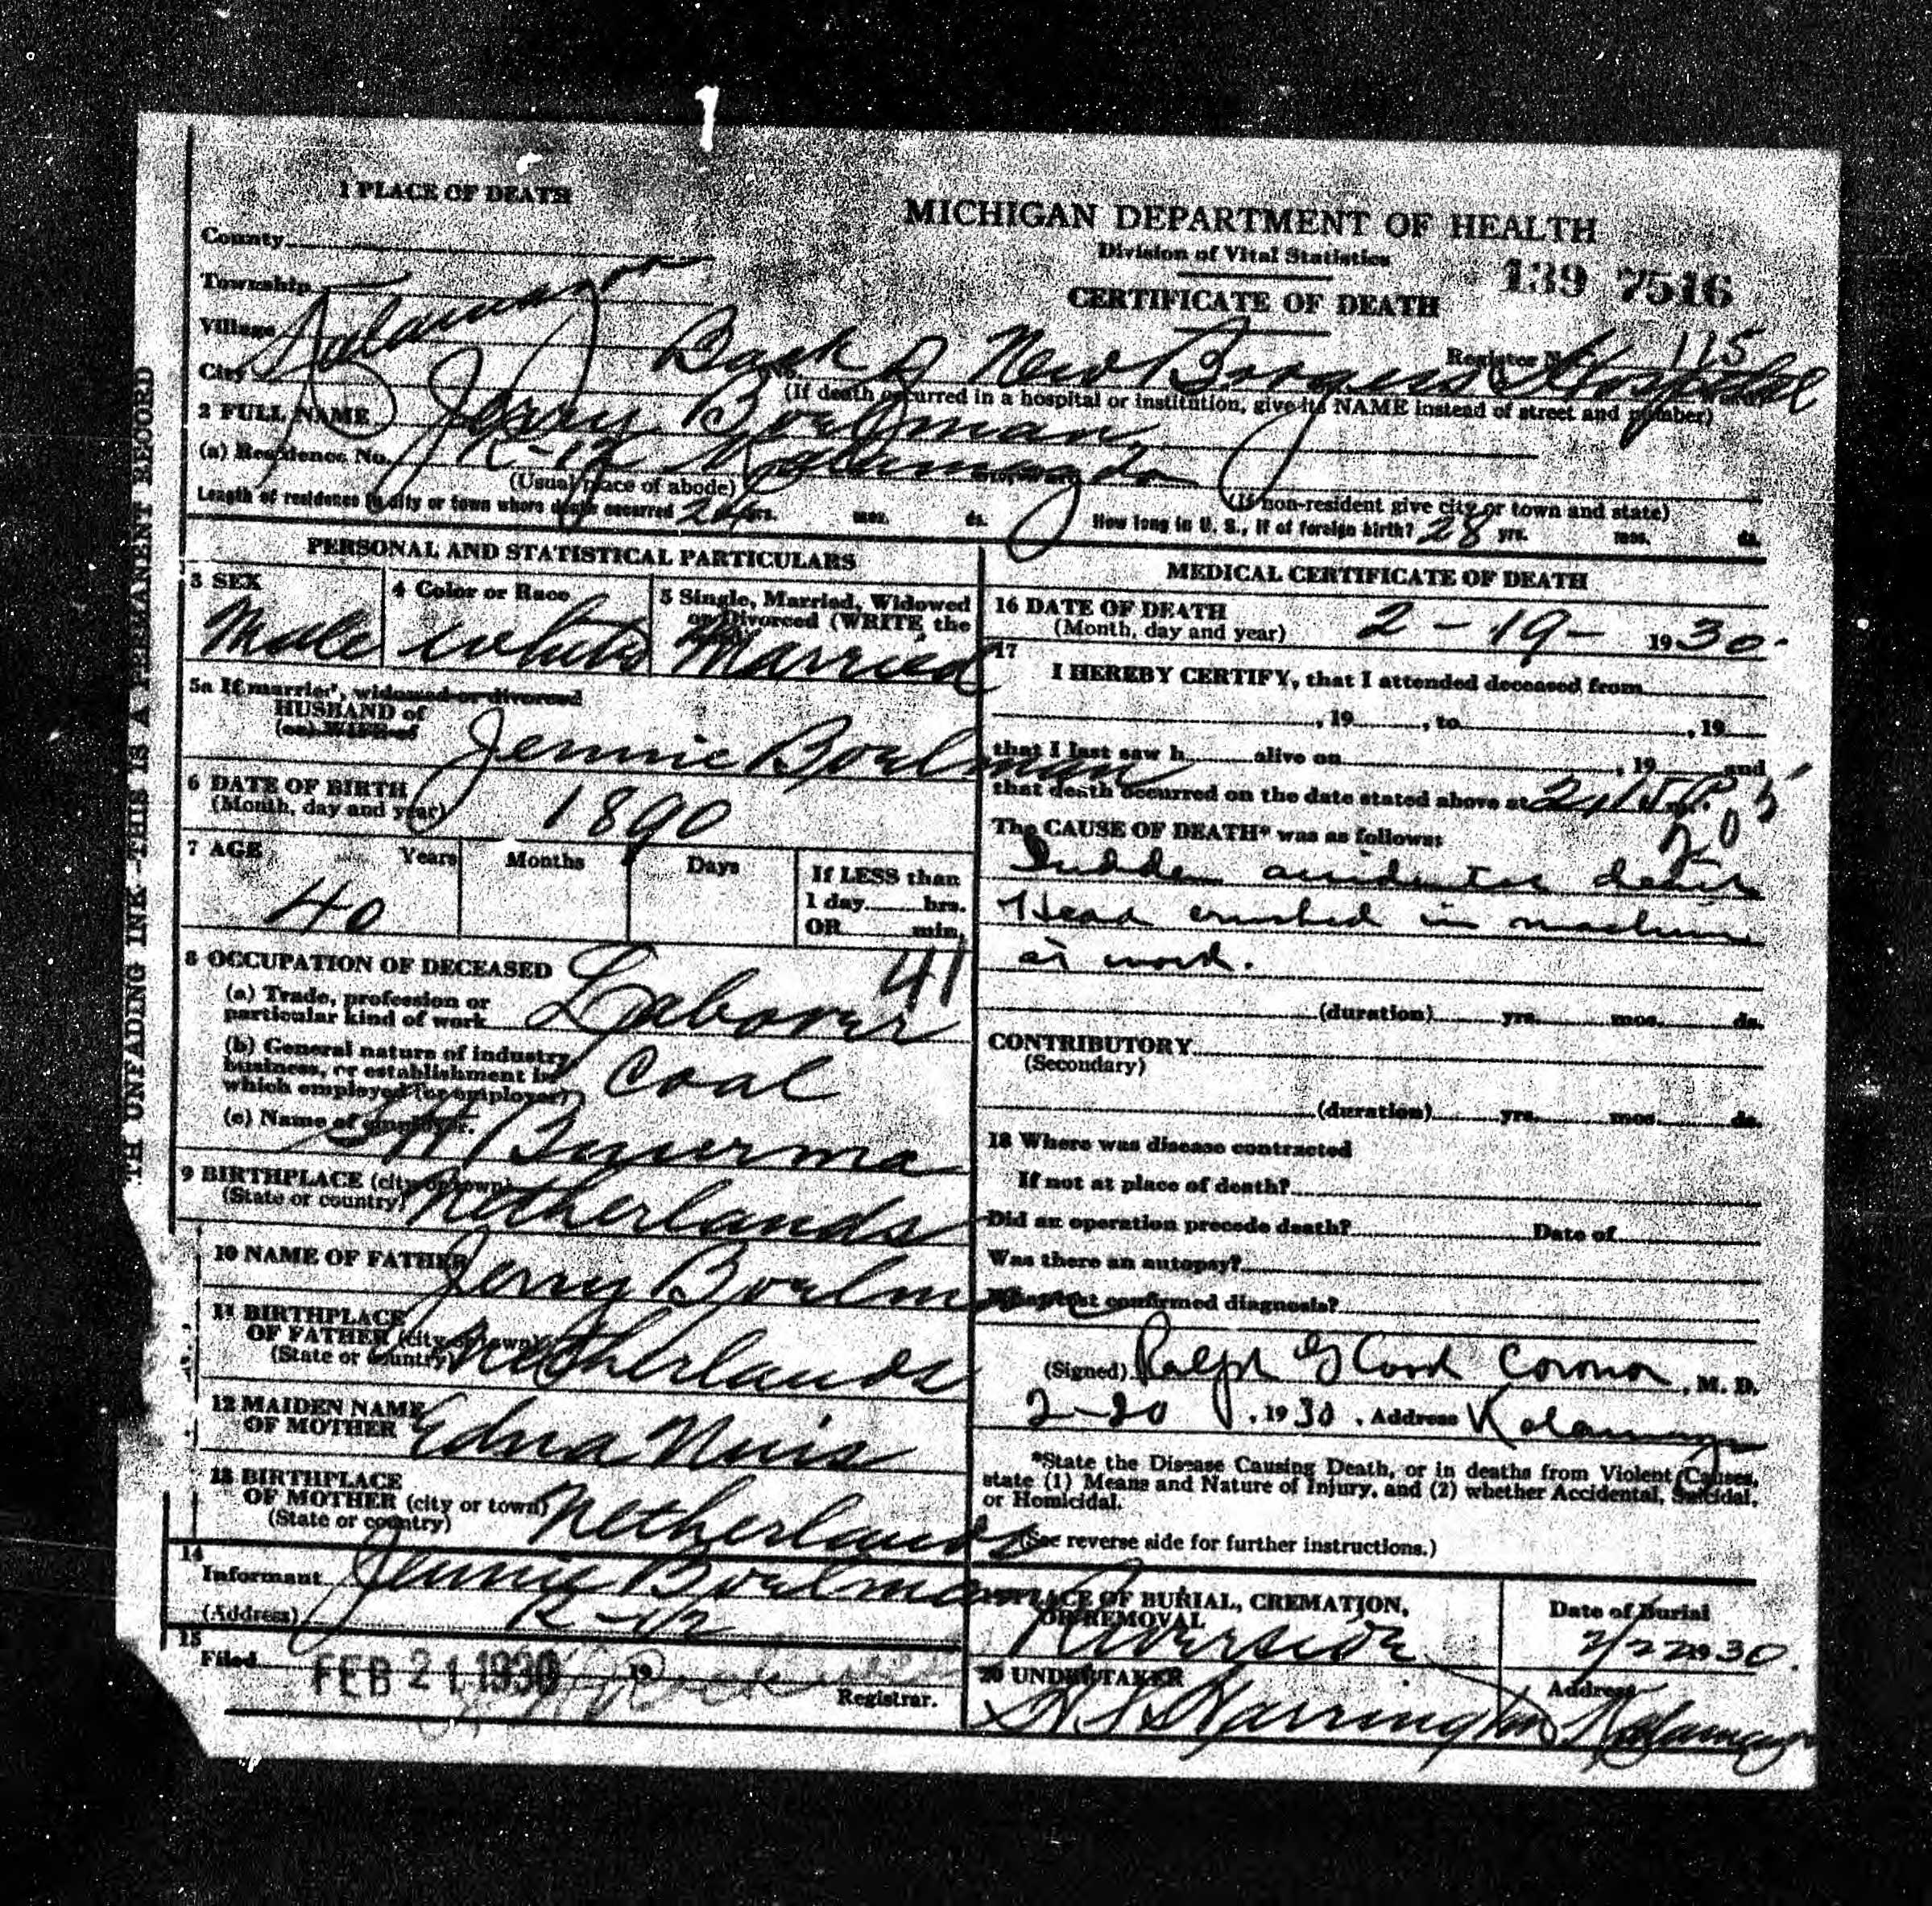 1
1 PLACE OF DEATH
MICHIGAN DEPARTMENT OF HEALTH
Division of Vital Statistics
139 7516
CERTIFICATE OF DEATH
County
Township
Village
Register No. 115
City Kalamazoo Back of New Borgess Hospital
(If death occurred in a hospital or institution, give its NAME instead of street and number)
2 FULL NAME Jerry Boelman
(a) Residence No. R-12 Kalamazoo
(Usual place of abode) (If non-resident give city or town and state)
Length of residence in city or town where death occurred yrs. mos. ds. How long in U. S., if of foreign birth? 28 yrs. mos. ds.
TH UNFADING INK—THIS IS A PERMANENT RECORD
PERSONAL AND STATISTICAL PARTICULARS
3 SEX
Male
4 Color or Race
White
5 Single, Married, Widowed
or Divorced (WRITE the
Married
5a If married, widowed or divorced
HUSBAND of
(or) WIFE of
Jennie Boelman
6 DATE OF BIRTH
(Month, day and year) 1890
7 AGE Years Months Days
40
If LESS than
1 day hrs.
OR min.
41
8 OCCUPATION OF DECEASED
(a) Trade, profession or
particular kind of work Laborer
(b) General nature of industry
business, or establishment in
which employed (or employer) Coal
(c) Name of employer.
Bouerma
9 BIRTHPLACE (city or town)
(State or country) Netherlands
10 NAME OF FATHER Jerry Boelman
11 BIRTHPLACE
OF FATHER (city or town)
(State or country) Netherlands
12 MAIDEN NAME
OF MOTHER Edna Nuis
13 BIRTHPLACE
OF MOTHER (city or town)
(State or country) Netherlands
14
Informant Jennie Boelman
(Address) R-12
15
Filed FEB 21 1930 19
Registrar.
MEDICAL CERTIFICATE OF DEATH
16 DATE OF DEATH
(Month, day and year) 2-19- 1930.
17
I HEREBY CERTIFY, that I attended deceased from
, 19 , to , 19
that I last saw h alive on , 19 and
that death occurred on the date stated above at m.
The CAUSE OF DEATH* was as follows:
Sudden accidental death
Head crushed in machine
at work.
(duration) yrs. mos. ds.
CONTRIBUTORY
(Secondary)
(duration) yrs. mos. ds.
18 Where was disease contracted
If not at place of death?
Did an operation precede death? Date of
Was there an autopsy?
What test confirmed diagnosis?
(Signed) Ralph G Cook Coroner, M. D.
2-20, 1930, Address Kalamazoo
*State the Disease Causing Death, or in deaths from Violent Causes,
state (1) Means and Nature of Injury, and (2) whether Accidental, Suicidal,
or Homicidal.
(See reverse side for further instructions.)
19 PLACE OF BURIAL, CREMATION,
OR REMOVAL
Riverside
Date of Burial
2/22 1930.
20 UNDERTAKER
Harrington
Address
Kalamazoo